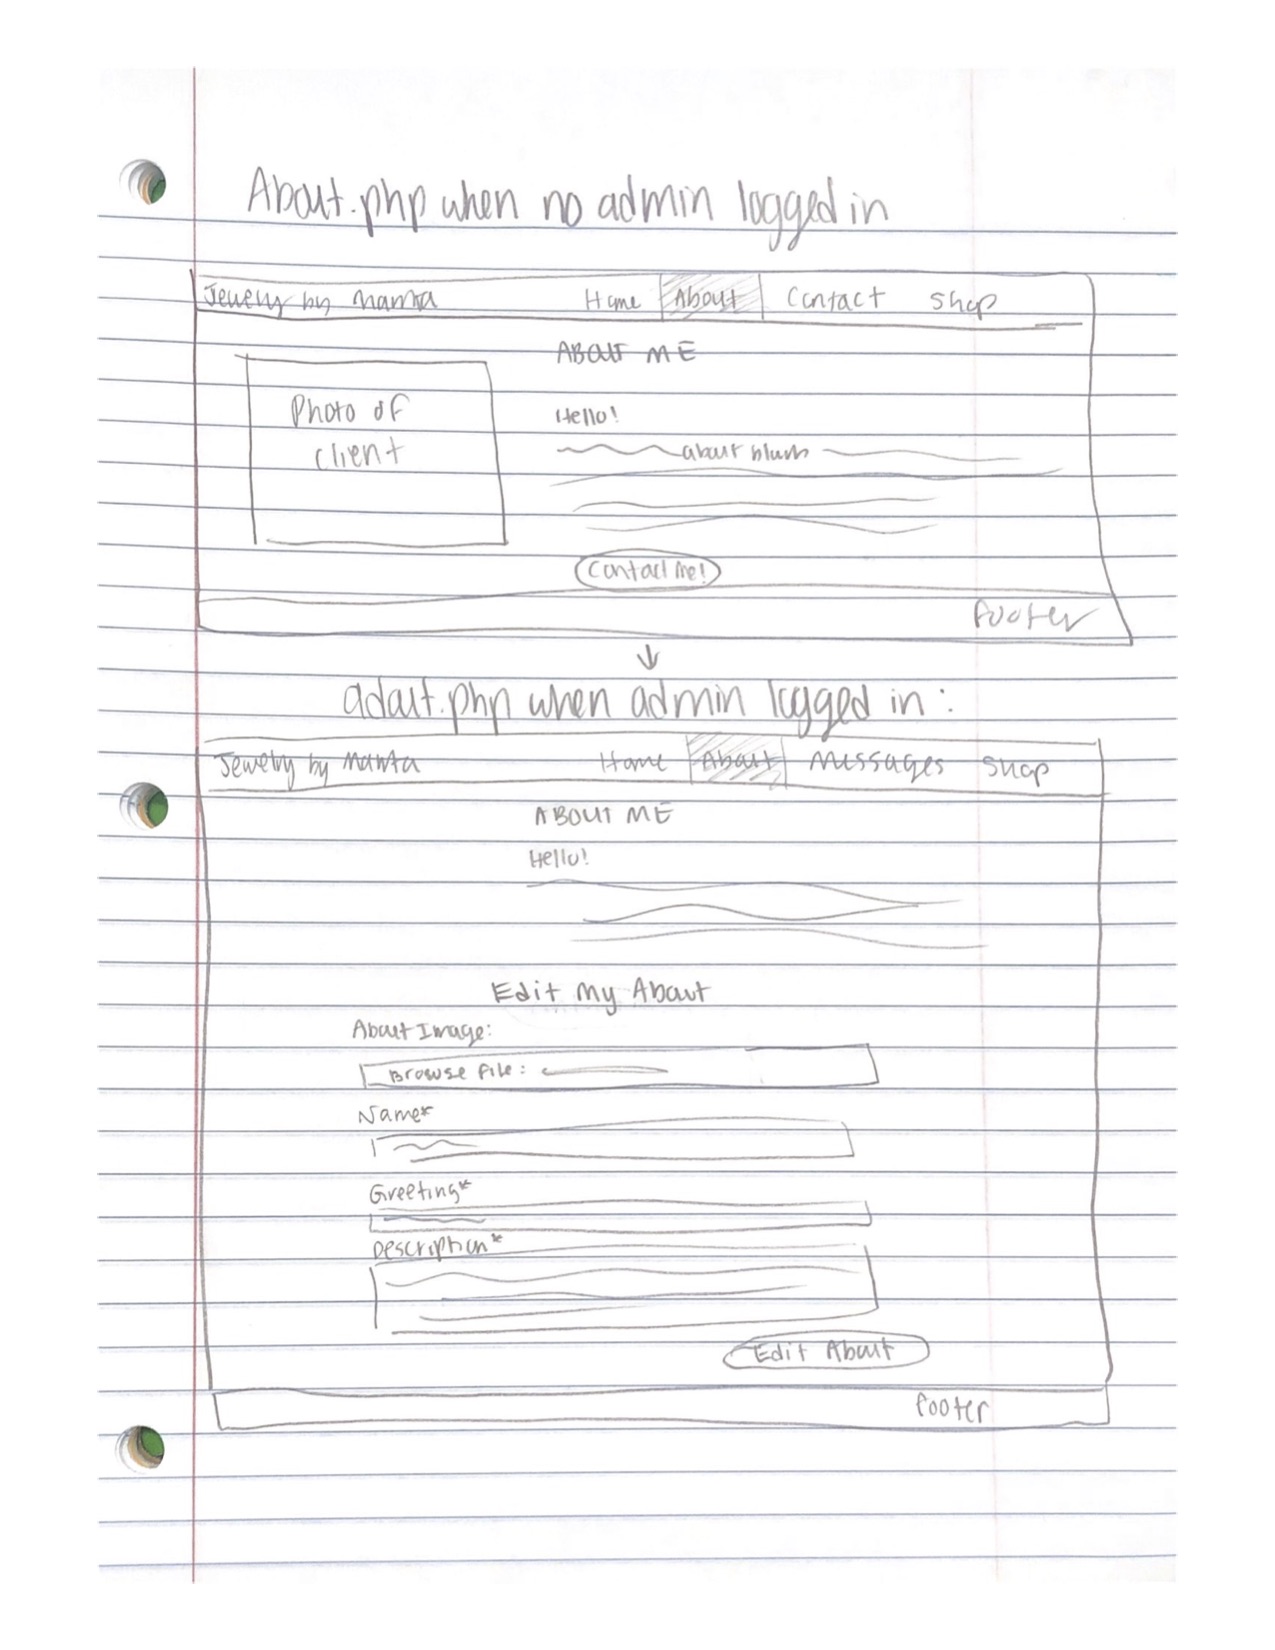 About.php when no admin logged in
Jewelry by Mamta Home About Contact Shop
ABOUT ME
Photo of
client
Hello!
about blurb
Contact Me!
footer
adout.php when admin logged in:
Jewelry by Mamta Home About Messages Shop
ABOUT ME
Hello!
Edit My About
About Image:
Browse file:
Name*
Greeting*
Description*
Edit About
footer